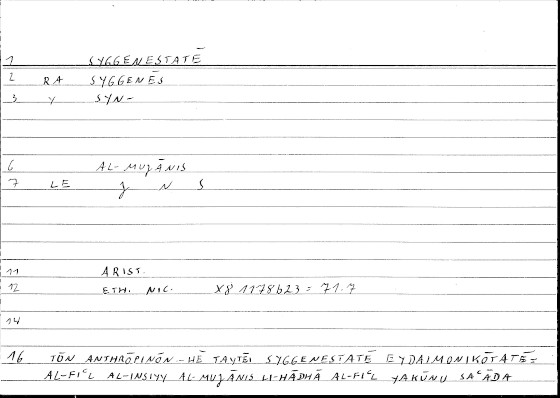 1 SYGGENESTATĒ
2 RA SYGGENĒS
3 Y SYN-
6 AL-MUJĀNIS
7 LE J N S
11 ARIST.
12 ETH. NIC. X8 1178b23 = 71.7
14
16 TŌN ANTHRŌPINŌN-HĒ TAYTĒI SYGGENESTATĒ EYDAIMONIKŌTATĒ=
AL-FIᶜL AL-INSIYY AL-MUJĀNIS LI-HĀDHĀ AL-FIᶜL YAKŪNU SAᶜĀDA